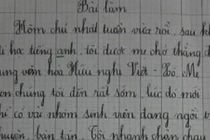 Bài làm
Hôm chủ nhật tuần vừa rồi, sau k
học tiếng anh, tôi được mẹ chở thẳng đ
ung văn hóa Hữu nghị Việt - Xô. Mẹ
chúng tôi đến rất sớm, lúc đó mới
có vài nhóm sinh viên đang ngồi t
chuyện, bàn tán. Tôi nhanh chân chạy